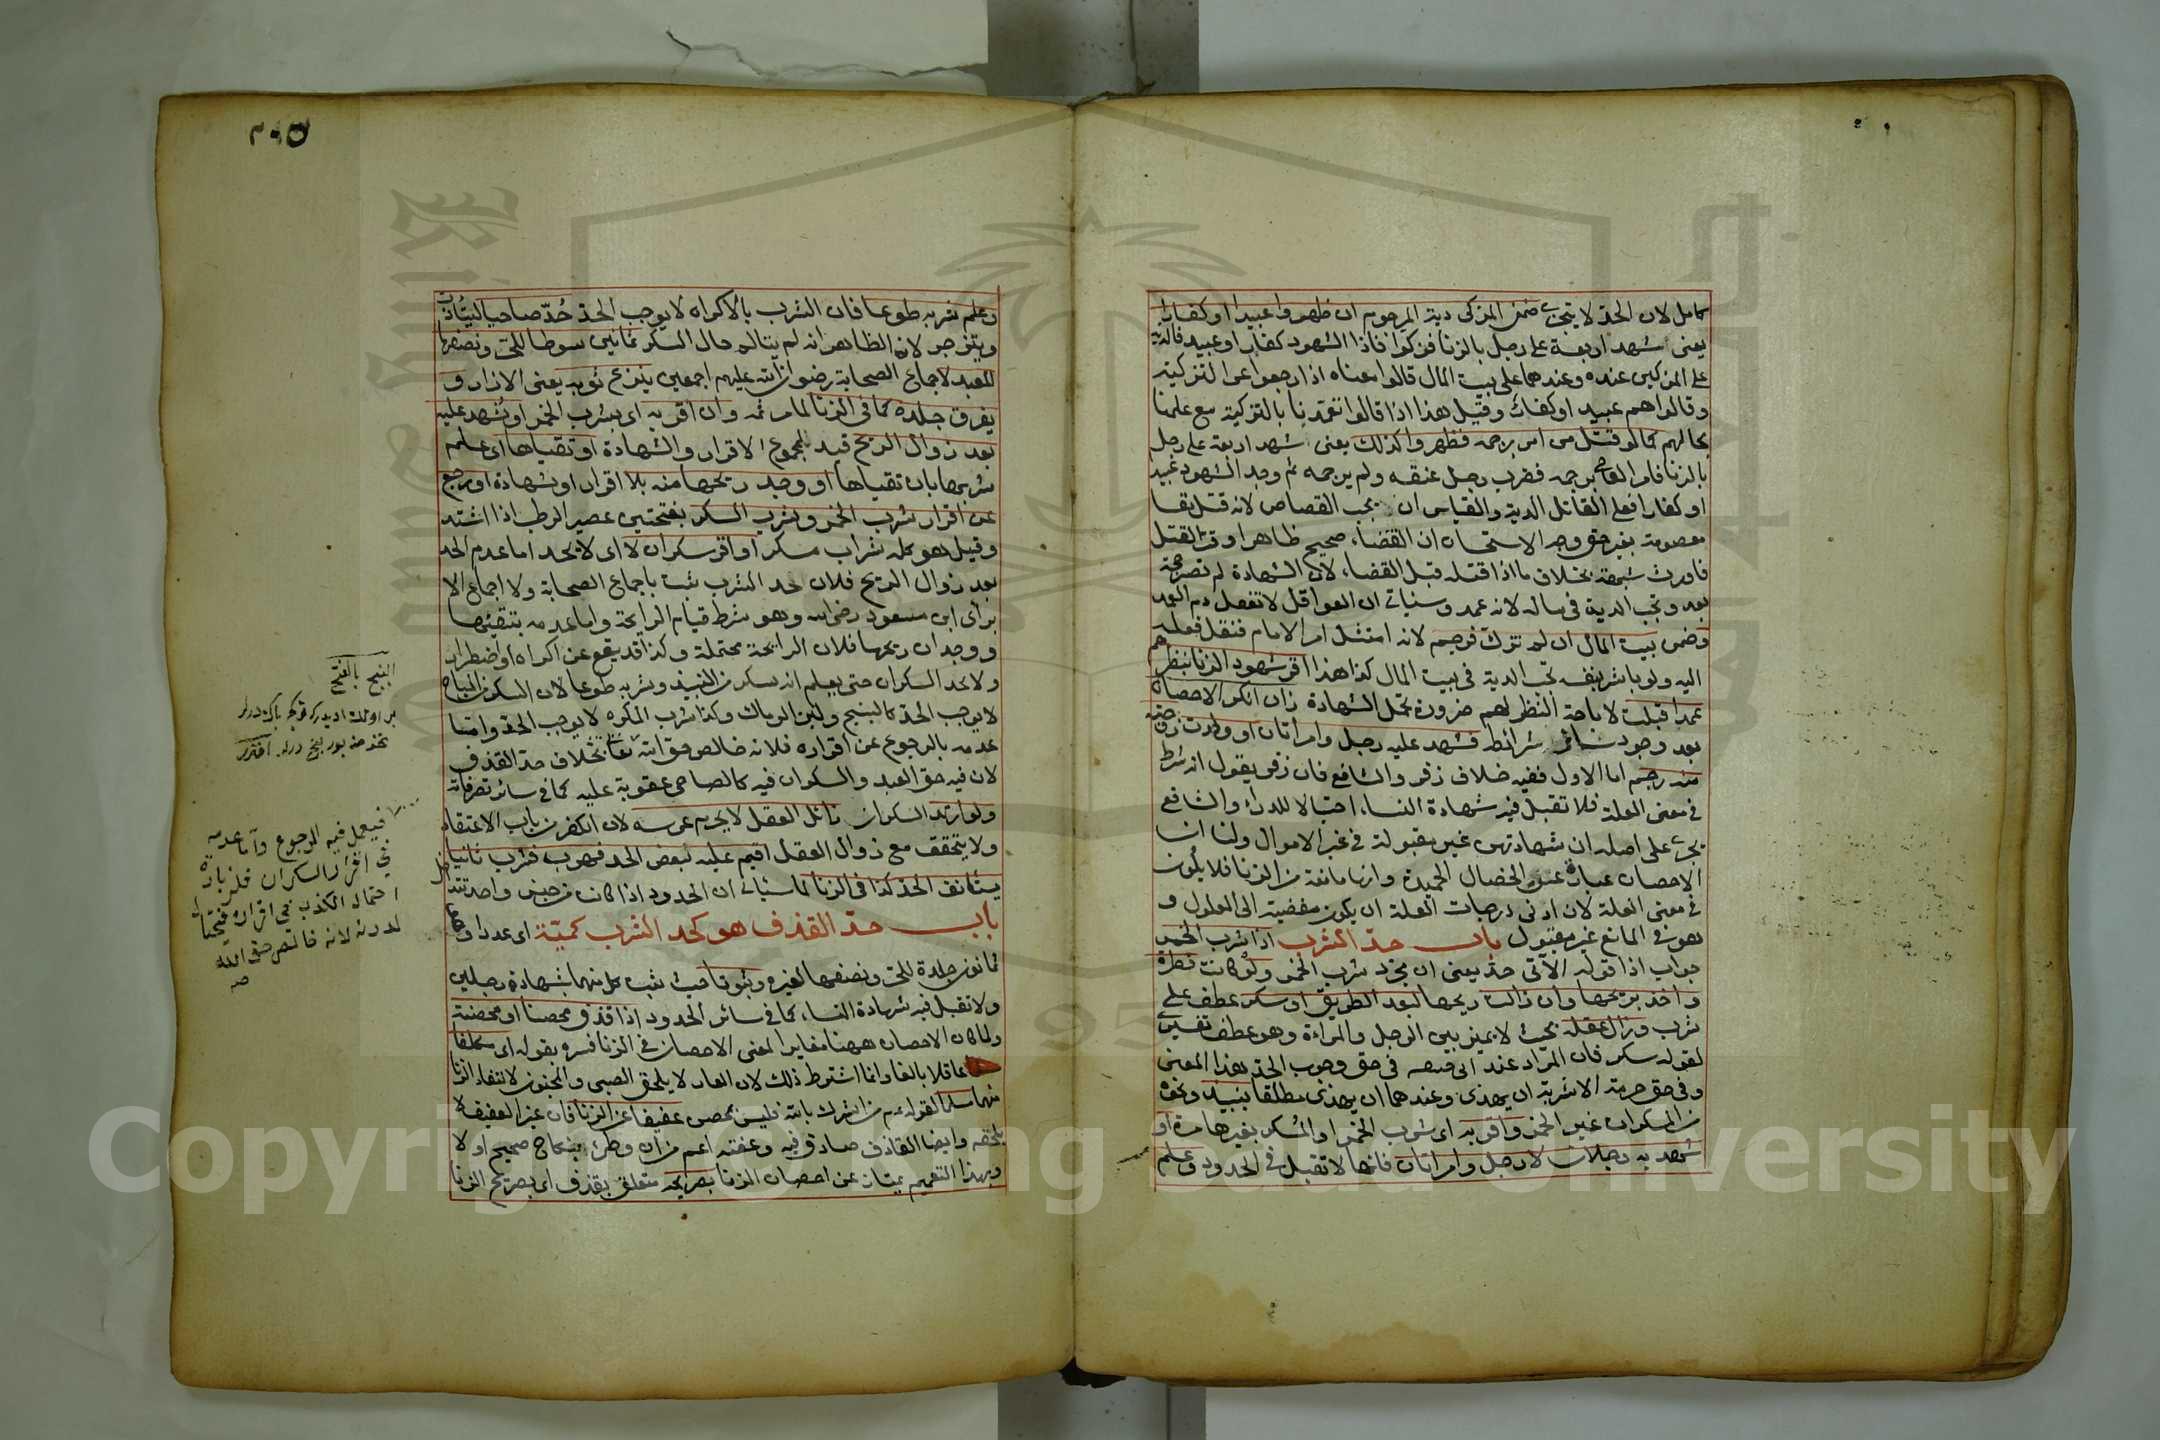 كامل لان الحد لا يتجزى ضمن المزكى دية المرجوم ان ظهروا عبيدا او كفارا
يعنى شهد اربعة على رجل بالزنا فزكوا فاذا الشهود كفار او عبيد فالدية
على المزكين عنده وعندهما على بيت المال قالوا معناه اذا رجعوا عن التزكية
وقالوا هم عبيد او كفار وقيل هذا اذا قالوا تعمدنا بالتزكية مع علمنا
بحالهم كما لو قتل من امر برجمه فظهروا كذلك يعنى شهد اربعة على رجل
بالزنا فامر القاضى برجمه فضرب رجل عنقه ولم يرجمه ثم وجد الشهود عبيدا
او كفارا فعلى القاتل الدية والقياس ان يجب القصاص لانه قتل نفسا
معصومة بغير حق وجه الاستحسان ان القضاء صحيح ظاهرا وقت القتل
فاورث شبهة بخلاف ما اذا قتله قبل القضاء لان الشهادة لم تصر حجة
بعد وتجب الدية فى ماله لانه عمد وسيأتى ان العواقل لا تعقل دم العمد
وضمن بيت المال ان لم تزك فرجم لانه امتثل امر الامام فنقل فعله
اليه ولو باشر بنفسه تجب الدية فى بيت المال كذا هذا اقر شهود الزنا بنظرهم
عمدا قبلت لاباحة النظر لهم ضرورة تحمل الشهادة زان انكر الاحصان
بعد وجود سائر شرائط فشهد عليه رجل وامراتان او ولدت زوجته
منه رجم اما الاول ففيه خلاف زفر والشافعى فان زفر يقول انه شرط
فى معنى العلة فلا تقبل فيه شهادة النساء احتيالا للدرأ والشافعى
يجرى على اصله ان شهادتهن غير مقبولة فى غير الاموال ولنا ان
الاحصان عبارة عن الخصال الحميدة وانها مانعة من الزنا فلا يكون
فى معنى العلة لان ادنى درجات العلة ان يكون مفضية الى المعلول و
هو فى المانع غير معقول باب حد الشرب اذا شرب الخمر
جواب اذا قوله الآتى حد يعنى ان مجرد شرب الخمر ولو كانت قطرة
واخذ بريحها وان زالت ريحها لبعد الطريق او سكر عطف على
شرب وزال عقله بحيث لا يميز بين الرجل والمراة وهو عطف تفسير
لقوله سكر فان المراد عند ابى حنيفة فى حق وجوب الحد هذا المعنى
وفى حق حرمة الاشربة ان يهذى وعندهما ان يهذى مطلقا بنبيذ ونحوه
من المسكرات غير الخمر واقر به اى بشرب الخمر او المسكر بغيرها مرة او
شهد به رجلان لا رجل وامراتان فانها لا تقبل فى الحدود وعلم
٢٠٥
وعلم شربه طوعا فان الشرب بالاكراه لا يوجب الحد حد صاحيا ليتأدب
وينزجر لان الظاهر انه لم يتألم حال السكر ثمانين سوطا للحر ونصفها
للعبد لاجماع الصحابة رضوان الله عليهم اجمعين ينزع ثوبه يعنى الازار و
يفرق جلده كما فى الزنا لما مر ثمه وان اقر به اى بشرب الخمر او شهد عليه
بعد زوال الريح قيد لمجموع الاقرار والشهادة او تقيأها اى علم
شربها بان تقيأها او وجد ريحها منه بلا اقرار او شهادة او رجع
عن اقرار شرب الخمر وشرب السكر بفتحتين عصير الرطب اذا اشتد
وقيل هو كل شراب مسكر او اقر سكران لا اى لا يحد اما عدم الحد
بعد زوال الريح فلان حد الشرب ثبت باجماع الصحابة ولا اجماع الا
برأى ابن مسعود رضى الله وهو شرط قيام الرايحة واما عدمه بتقيئها
ووجدان ريحها فلان الرايحة محتملة وكذا قد يقع عن اكراه او اضطرار
ولا يحد السكران حتى يعلم انه سكر من النبيذ وشربه طوعا لان السكر من المباح
لا يوجب الحد كالبنج ولبن الرماك وكذا شرب المكره لا يوجب الحد واما
عدمه بالرجوع عن اقراره فلانه خالص حق الله تعا بخلاف حد القذف
لان فيه حق العبد والسكران فيه كالصاحى عقوبة عليه كما فى سائر تصرفاته
ولو ارتد السكران زائل العقل لا يحرم عرسه لان الكفر من باب الاعتقاد
ولا يتحقق مع زوال العقل اقيم عليه بعض الحد فهرب فشرب ثانيا
يستأنف الحد كذا فى الزنا لما سيأتى ان الحدود اذا كانت من جنس واحد تتداخل
باب حد القذف هو كحد الشرب كمية اى عددا وهو
ثمانون جلدة للحر ونصفها لغيره وثبوتا حيث يثبت كل منهما بشهادة رجلين
ولا تقبل فيه شهادة النساء كما فى سائر الحدود اذا قذف محصنا او محصنة
ولما كان الاحصان ههنا مغايرا لمعنى الاحصان فى الزنا فسره بقوله اى مكلفا
عاقلا بالغا وانما اشترط ذلك لان العار لا يلحق الصبى والمجنون لانتفاء الزنا
منهما مسلما لقوله عم من اشرك بالله فليس بمحصن عفيفا عن الزنا فان غير العفيف لا
يلحقه وايضا القاذف صادق فيه وعفته اعم من ان وطئ بنكاح صحيح او لا
وبهذا التعميم يمتاز عن احصان الزنا بصريحه متعلق بقذف اى بصريح الزنا
البنج بالفتح
فيعمل فيه الرجوع واما عدمه
فى اقرار السكران فلزيادة
احتمال الكذب فى اقراره فيحتال
لدرئه لانه خالص حق الله
صح
Copyright © King Saud University
King Saud University
1957